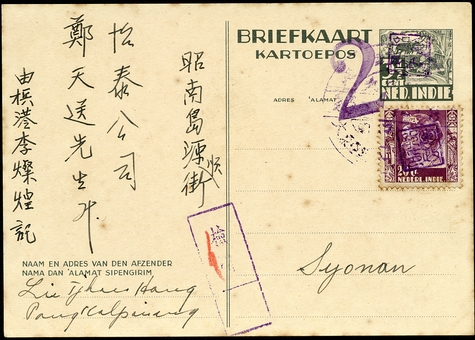 BRIEFKAART
KARTOEPOS
NED. INDIE
2
ADRES 'ALAMAT
20 CT
NEDERL. INDIE
昭南島源順街
怡泰公司
鄭天送先生
由檳港李燦煌記
Syonan
NAAM EN ADRES VAN DEN AFZENDER
NAMA DAN 'ALAMAT SIPENGIRIM
Lie Tjhan Hong
Pangkalpinang